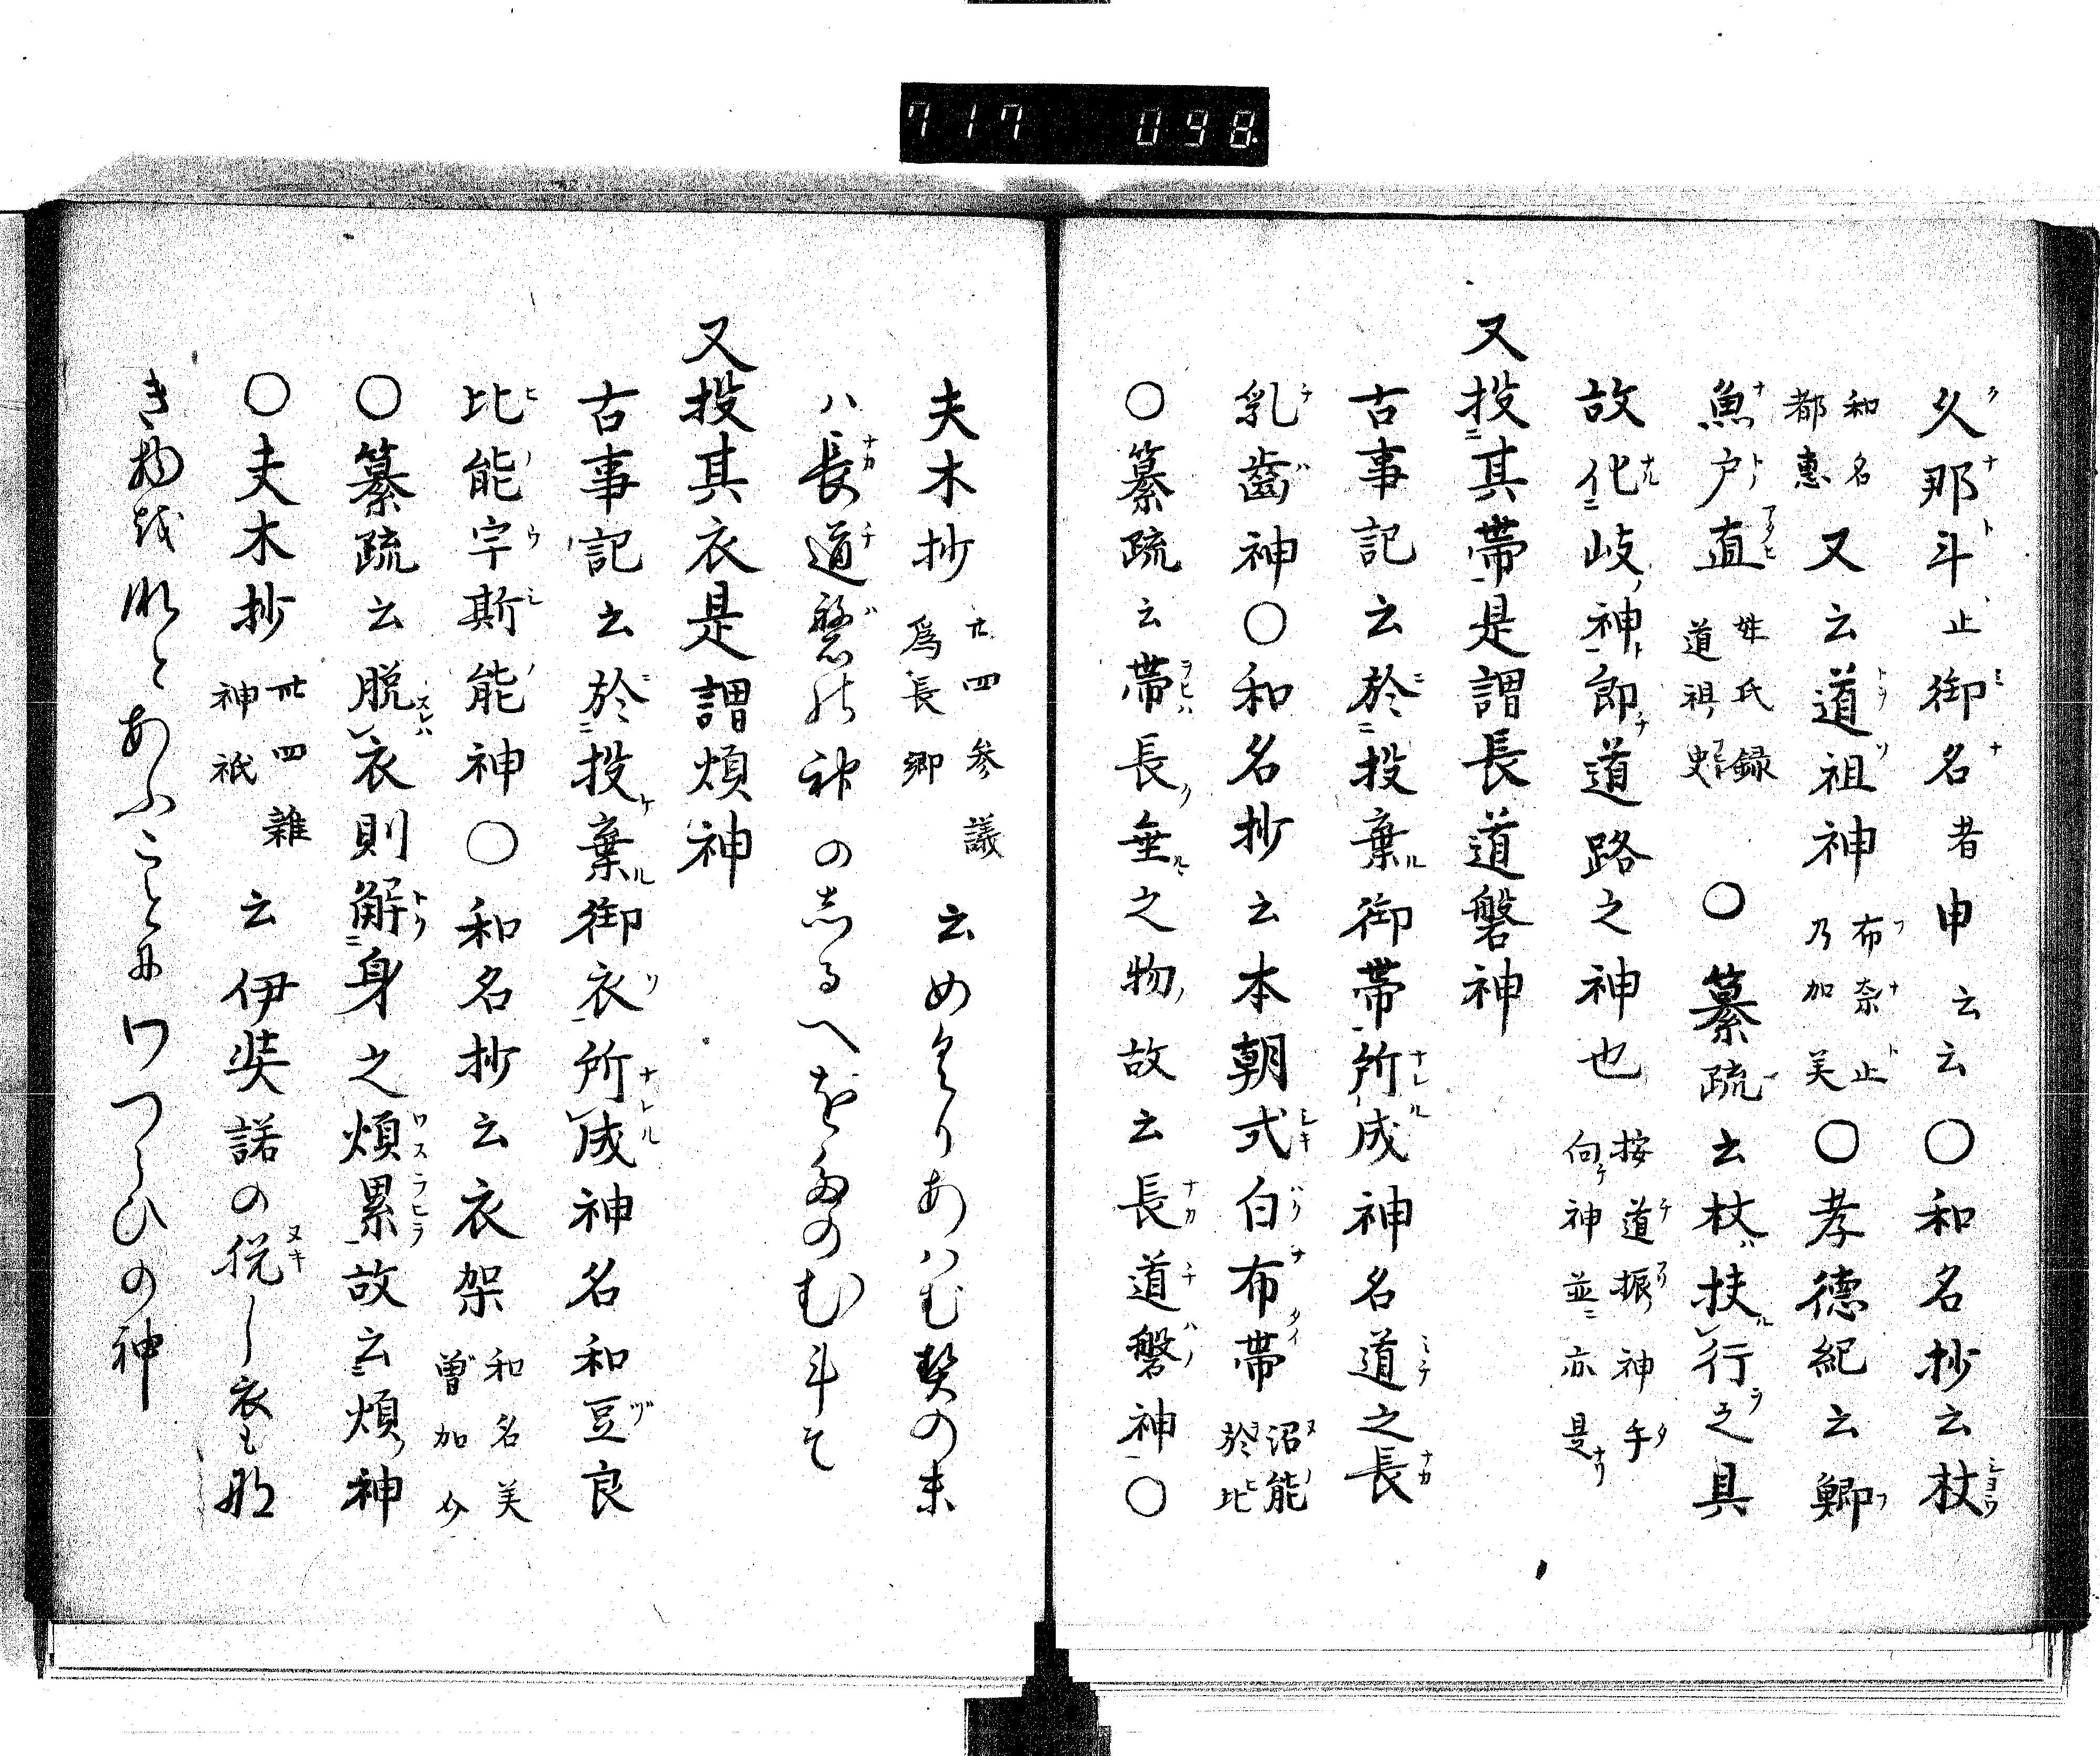 717 098
久那斗止御名者申云云〇和名抄云杖
和名都恵又云道祖神布奈止乃加美〇孝徳紀云鯽
魚戸直姓氏録道祖史〇纂疏云杖扶行之具
故化岐神即道路之神也按道振神手向神並亦是
又投其帶是謂長道磐神
古事記云於投棄御帶所成神名道之長
乳齒神〇和名抄云本朝式白布帶沼能於比
〇纂疏云帶長垂之物故云長道磐神〇
夫木抄廿四参議為長卿云めくりあはむ契の末
ハ長道磐の神のしるへをたのむ斗そ
又投其衣是謂煩神
古事記云於投棄御衣所成神名和豆良
比能宇斯能神〇和名抄云衣架和名美曽加介
〇纂疏云脱衣則解身之煩累故云煩神
〇夫木抄卅四雜神祇云伊奘諾の侻し衣も那
き物をなとあふことにわつらひの神